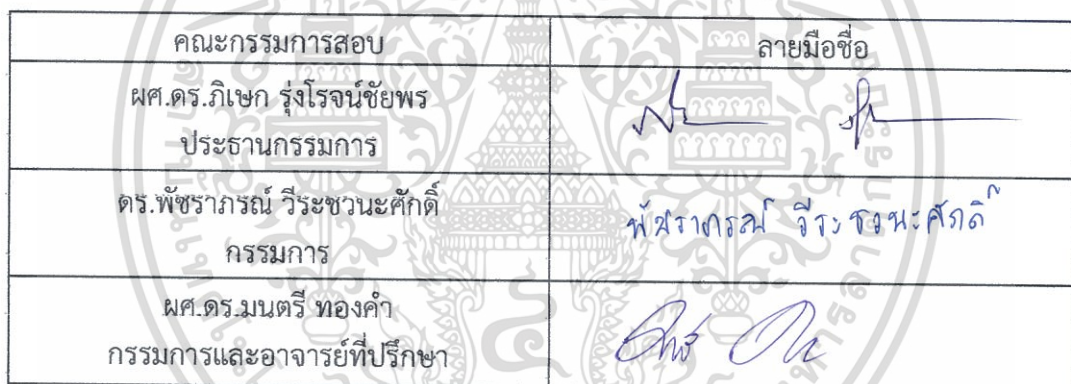 คณะกรรมการสอบ ลายมือชื่อ
ผศ.ดร.ภิเษก รุ่งโรจน์ชัยพร
ประธานกรรมการ
ดร.พัชราภรณ์ วีระชวนะศักดิ์ พัชราภรณ์ วีระชวนะศักดิ์
กรรมการ
ผศ.ดร.มนตรี ทองคำ
กรรมการและอาจารย์ที่ปรึกษา